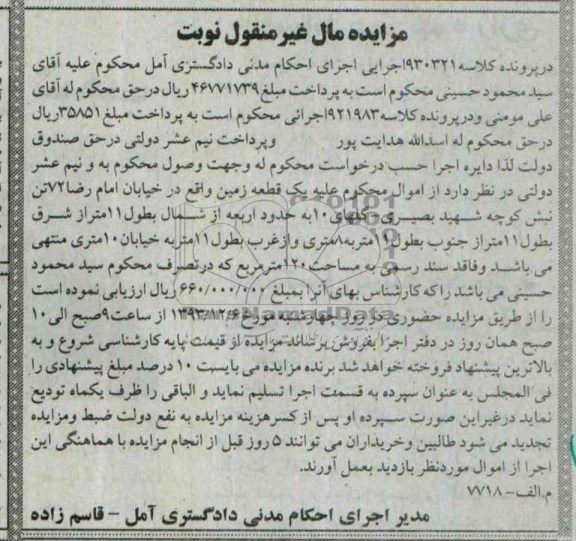 مزایده مال غیرمنقول نوبت
درپرونده کلاسه ۹۳۰۳۲۱اجرایی اجرای احکام مدنی دادگستری آمل محکوم علیه آقای
سید محمود حسینی محکوم است به پرداخت مبلغ ۴۶۷۷۱۷۳۹ ریال درحق محکوم له آقای
علی مومنی ودرپرونده کلاسه ۹۲۱۹۸۳اجرائی محکوم است به پرداخت مبلغ ۳۵۸۵۱ریال
درحق محکوم له اسدالله هدایت پور وپرداخت نیم عشر دولتی درحق صندوق
دولت لذا دایره اجرا حسب درخواست محکوم له وجهت وصول محکوم به و نیم عشر
دولتی در نظر دارد از اموال محکوم علیه یک قطعه زمین واقع در خیابان امام رضا۷۲تن
نبش کوچه شهید بصیری -گلهای۱۰به حدود اربعه از شمال بطول۱۱متراز شرق
بطول۱۱متراز جنوب بطول۱۱متربه۸متری وازغرب بطول۱۱متربه خیابان۱۰متری منتهی
می باشد وفاقد سند رسمی به مساحت۱۲۰مترمربع که درتصرف محکوم سید محمود
حسینی می باشد راکه کارشناس بهای آنرا بمبلغ ۶۶۰/۰۰۰/۰۰۰ریال ارزیابی نموده است
را از طریق مزایده حضوری در روز چهارشنبه مورخ ۱۳۹۳/۱۲/۶ از ساعت۹صبح الی۱۰
صبح همان روز در دفتر اجرا بفروش برساند مزایده از قیمت پایه کارشناسی شروع و به
بالاترین پیشنهاد فروخته خواهد شد برنده مزایده می بایست ۱۰ درصد مبلغ پیشنهادی را
فی المجلس به عنوان سپرده به قسمت اجرا تسلیم نماید و الباقی را ظرف یکماه تودیع
نماید درغیراین صورت سپرده او پس از کسرهزینه مزایده به نفع دولت ضبط ومزایده
تجدید می شود طالبین وخریداران می توانند ۵ روز قبل از انجام مزایده با هماهنگی این
اجرا از اموال موردنظر بازدید بعمل آورند.
م.الف-۷۷۱۸
مدیر اجرای احکام مدنی دادگستری آمل - قاسم زاده